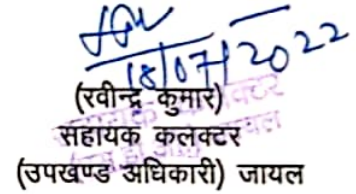 18/07/2022
(रवीन्द्र कुमार)
सहायक कलक्टर
(उपखण्ड अधिकारी) जायल